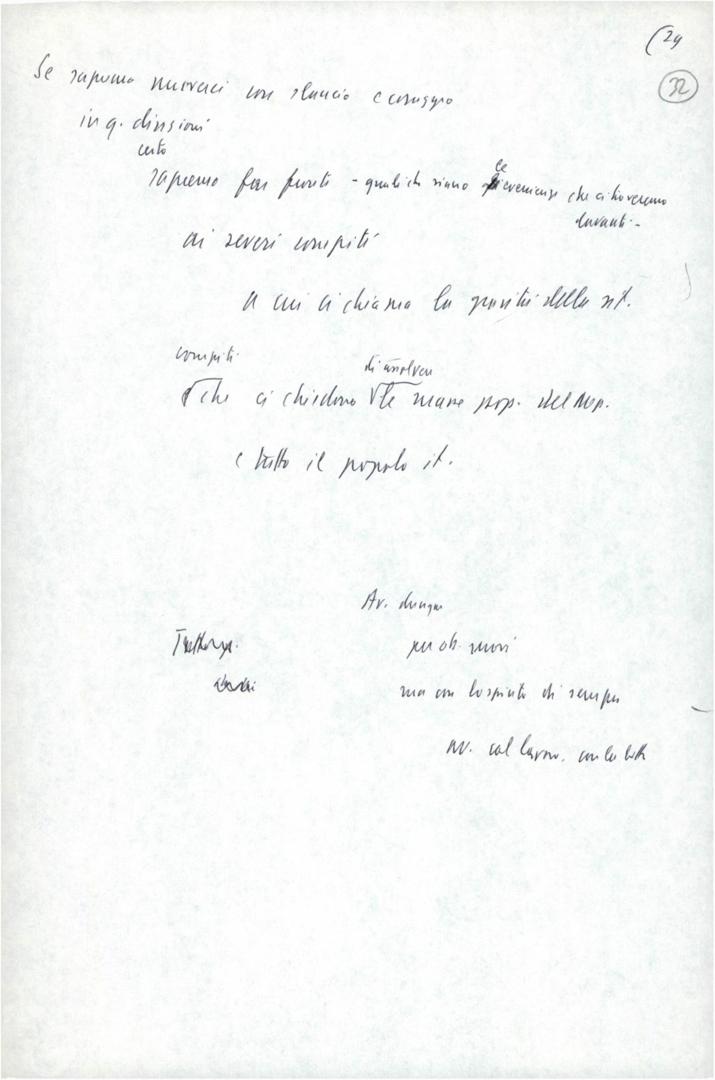 (24
32
Se sapremo muoverci con slancio e coraggio
in q. direzioni
certo
sapremo far fronte - quali che siano le evenienze che ci troveremo
davanti -
ai severi compiti
a cui ci chiama la gravità della sit.
compiti
di assolvere
che ci chiedono le masse pop. del Mezz.
e tutto il popolo it.
Av. dunque
per ob. nuovi
ma con lo spirito di sempre
av. col lavoro, con la lotta